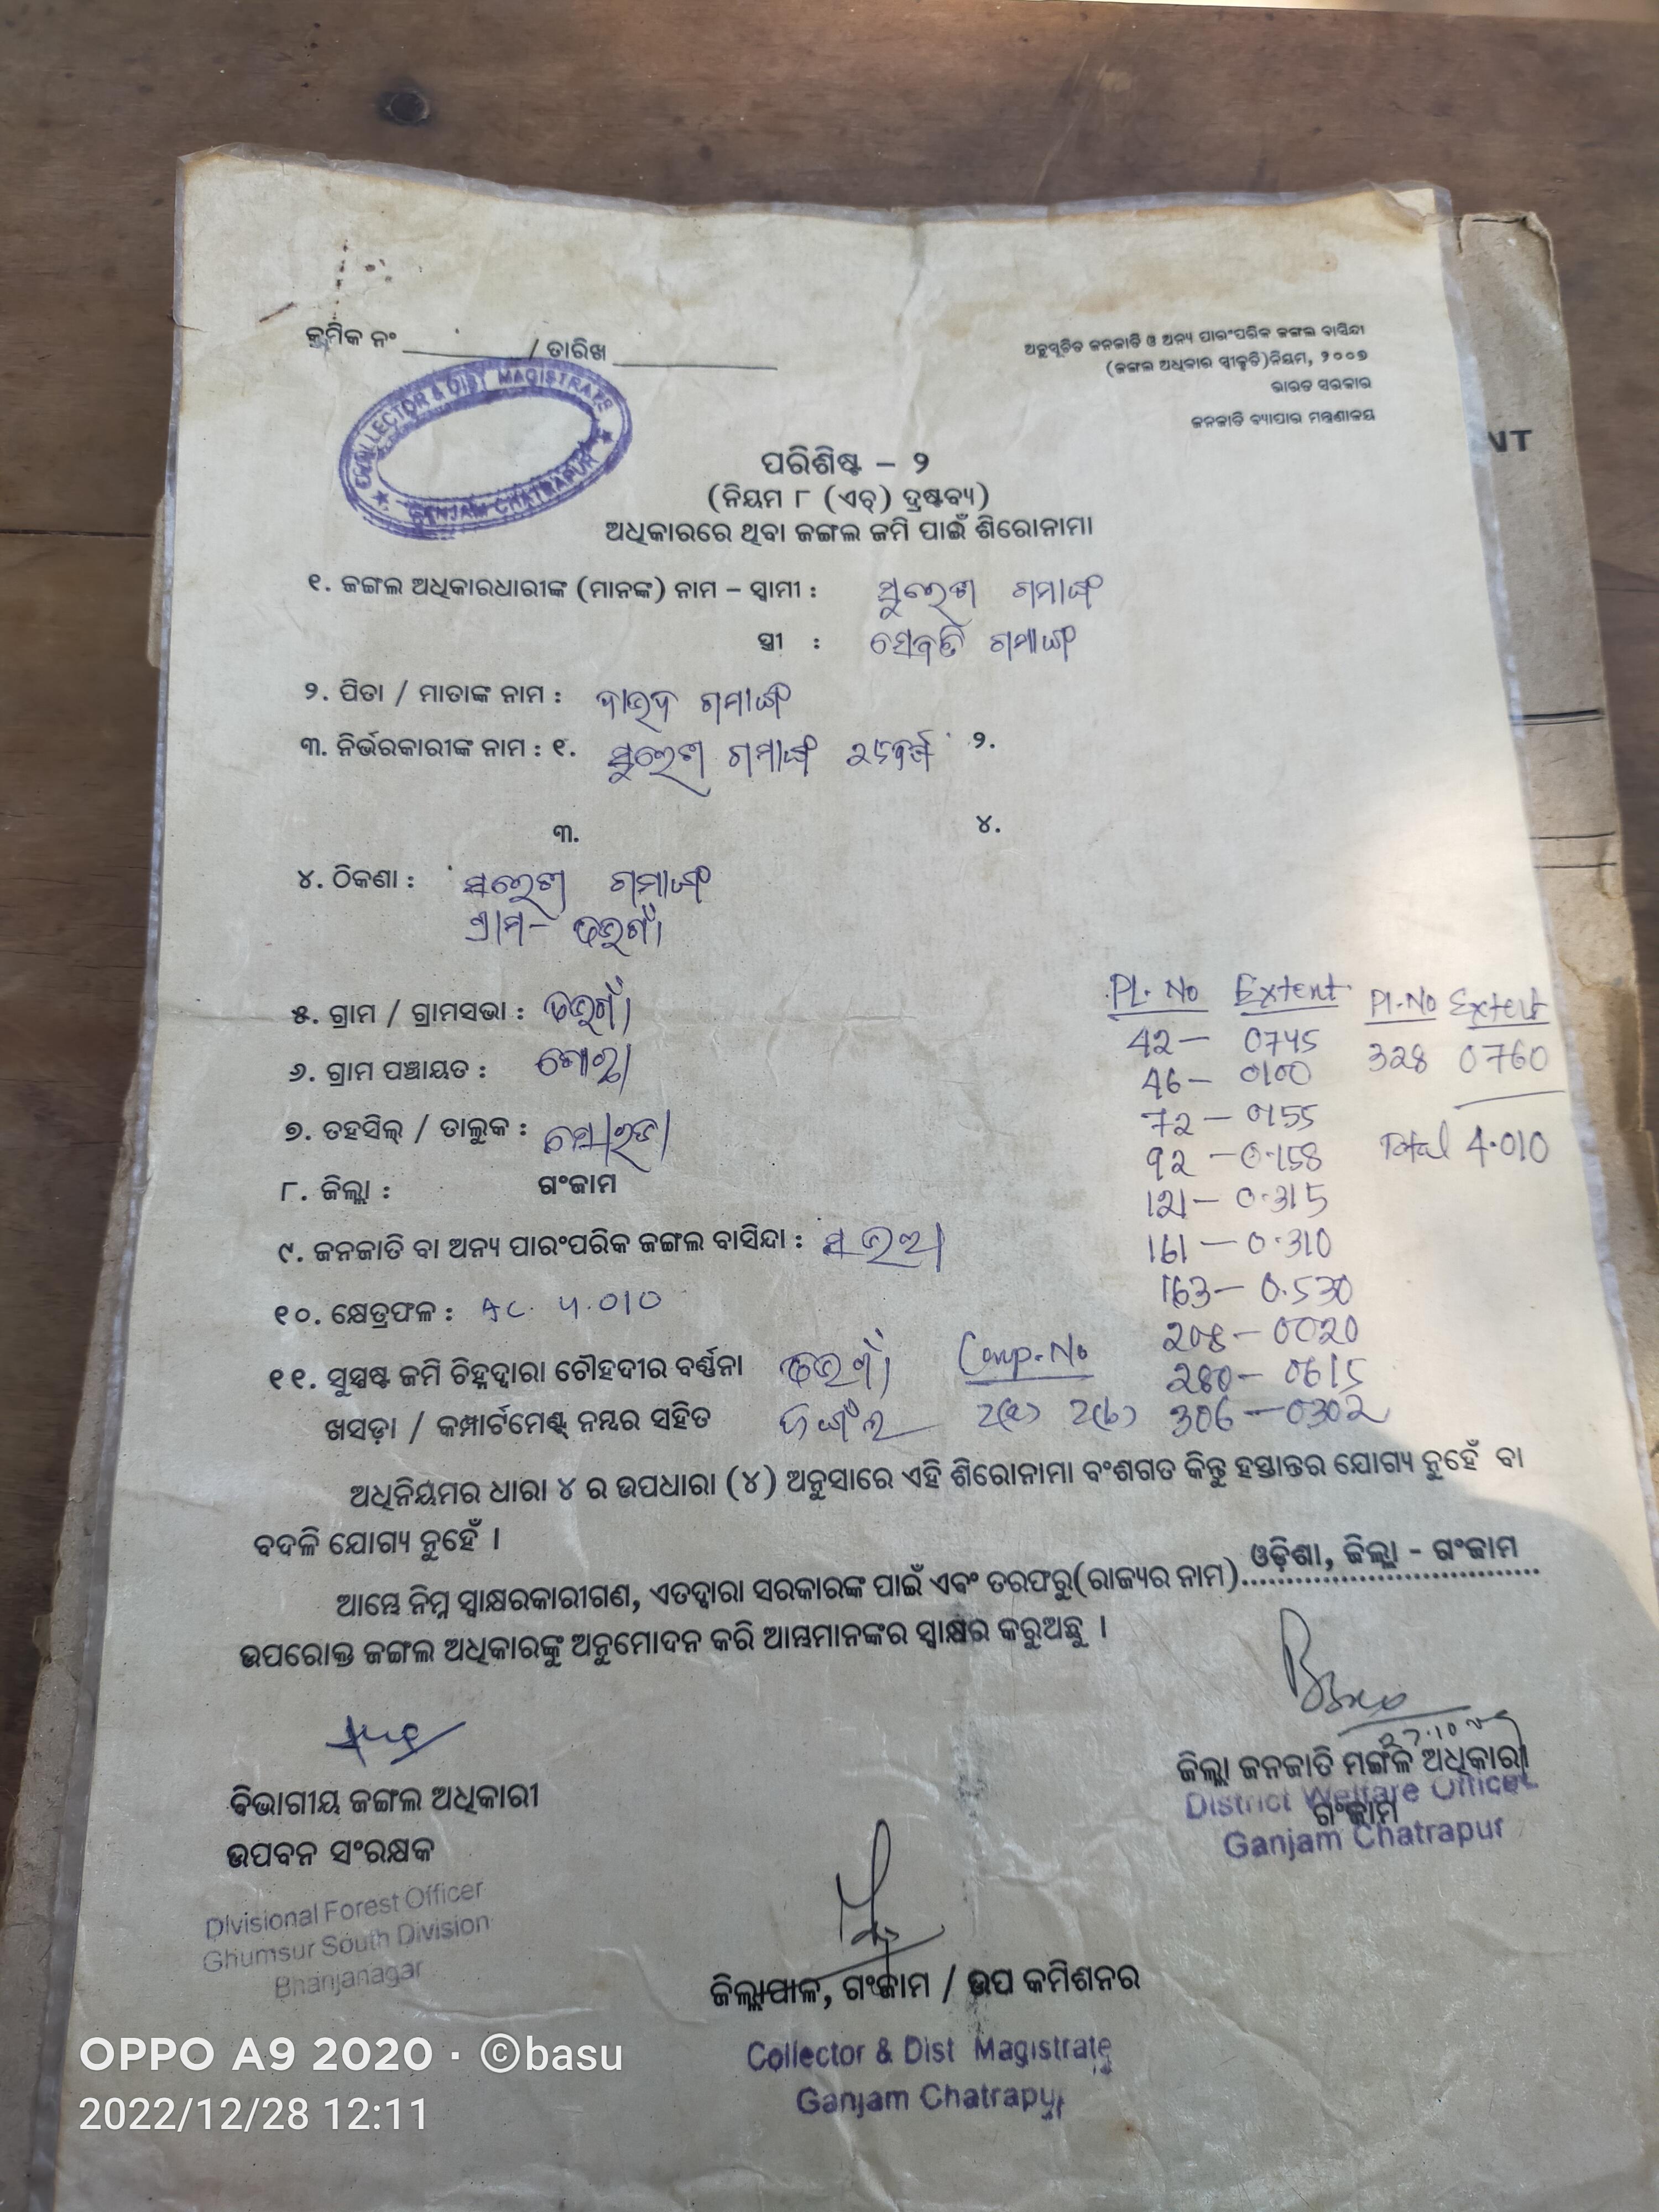 କ୍ରମିକ ନଂ / ତାରିଖ
ଅନୁସୂଚିତ ଜନଜାତି ଓ ଅନ୍ୟ ପାରଂପରିକ ଜଙ୍ଗଲ ବାସିନ୍ଦା
(ଜଙ୍ଗଲ ଅଧିକାର ସ୍ୱୀକୃତି)ନିୟମ, ୨୦୦୭
ଭାରତ ସରକାର
ଜନଜାତି ବ୍ୟାପାର ମନ୍ତ୍ରଣାଳୟ
COLLECTOR & DIST MAGISTRATE
GANJAM CHATRAPUR
NT
ପରିଶିଷ୍ଟ – ୨
(ନିୟମ ୮ (ଏଚ୍) ଦ୍ରଷ୍ଟବ୍ୟ)
ଅଧିକାରରେ ଥିବା ଜଙ୍ଗଲ ଜମି ପାଇଁ ଶିରୋନାମା
୧. ଜଙ୍ଗଲ ଅଧିକାରଧାରୀଙ୍କ (ମାନଙ୍କ) ନାମ – ସ୍ୱାମୀ : ଗମାଙ୍ଗ
ସ୍ତ୍ରୀ : ସେବତି ଗମାଙ୍ଗ
୨. ପିତା / ମାତାଙ୍କ ନାମ : ଦାଉଦ ଗମାଙ୍ଗ
୩. ନିର୍ଭରକାରୀଙ୍କ ନାମ : ୧. ଗମାଙ୍ଗ ୨.
୩. ୪.
୪. ଠିକଣା : ଗମାଙ୍ଗ
ଗ୍ରାମ-
୫. ଗ୍ରାମ / ଗ୍ରାମସଭା :
୬. ଗ୍ରାମ ପଞ୍ଚାୟତ :
୭. ତହସିଲ୍ / ତାଲୁକ :
୮. ଜିଲ୍ଲା : ଗଂଜାମ
୯. ଜନଜାତି ବା ଅନ୍ୟ ପାରଂପରିକ ଜଙ୍ଗଲ ବାସିନ୍ଦା :
୧୦. କ୍ଷେତ୍ରଫଳ : Ac. 4.010
Pl. No Extent
42 – 0745
46 – 0100
72 – 0155
92 – 0.158
121 – 0.315
161 – 0.310
163 – 0.530
208 – 0020
280 – 0615
306 – 0302
Pl.No Extent
328 0760
Total 4.010
୧୧. ସୁସ୍ପଷ୍ଟ ଜମି ଚିହ୍ନଦ୍ୱାରା ଚୌହଦୀର ବର୍ଣ୍ଣନା Comp. No
ଖସଡ଼ା / କମ୍ପାର୍ଟମେଣ୍ଟ୍ ନମ୍ବର ସହିତ ଜଙ୍ଗଲ 2(a) 2(b)
ଅଧିନିୟମର ଧାରା ୪ ର ଉପଧାରା (୪) ଅନୁସାରେ ଏହି ଶିରୋନାମା ବଂଶଗତ କିନ୍ତୁ ହସ୍ତାନ୍ତର ଯୋଗ୍ୟ ନୁହେଁ ବା
ବଦଳି ଯୋଗ୍ୟ ନୁହେଁ ।
ଆମ୍ଭେ ନିମ୍ନ ସ୍ୱାକ୍ଷରକାରୀଗଣ, ଏତଦ୍ୱାରା ସରକାରଙ୍କ ପାଇଁ ଏବଂ ତରଫରୁ(ରାଜ୍ୟର ନାମ)..... ଓଡ଼ିଶା, ଜିଲ୍ଲା - ଗଂଜାମ
ଉପରୋକ୍ତ ଜଙ୍ଗଲ ଅଧିକାରଙ୍କୁ ଅନୁମୋଦନ କରି ଆମ୍ଭମାନଙ୍କର ସ୍ୱାକ୍ଷର କରୁଅଛୁ ।
ଜିଲ୍ଲା ଜନଜାତି ମଙ୍ଗଳ ଅଧିକାରୀ
ଗଂଜାମ
District Welfare Officer
Ganjam Chatrapur
ବିଭାଗୀୟ ଜଙ୍ଗଲ ଅଧିକାରୀ
ଉପବନ ସଂରକ୍ଷକ
Divisional Forest Officer
Ghumsur South Division
Bhanjanagar
ଜିଲ୍ଲାପାଳ, ଗଂଜାମ / ଉପ କମିଶନର
Collector & Dist Magistrate
Ganjam Chatrapur
OPPO A9 2020 · ©basu
2022/12/28 12:11